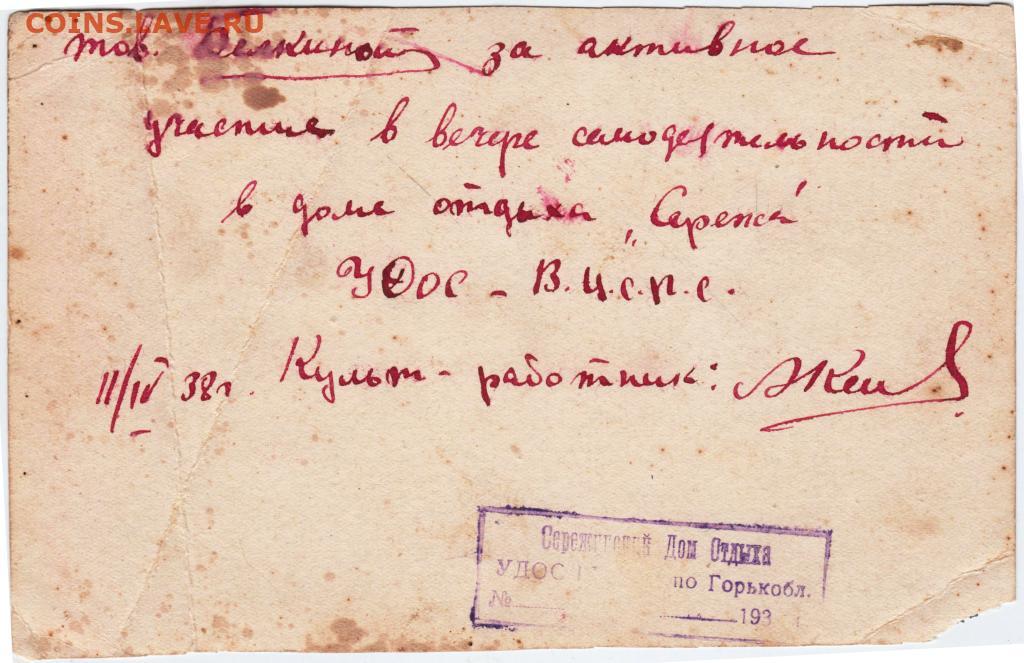 COINS.LAVE.RU
тов. Белкиной за активное
участие в вечере самодеятельности
в доме отдыха „Сережа"
УДОС - В.Ц.С.П.С.
11/IV 38 г. Культ-работник:
Сережинский Дом Отдыха
УДОС по Горькобл.
№ 193